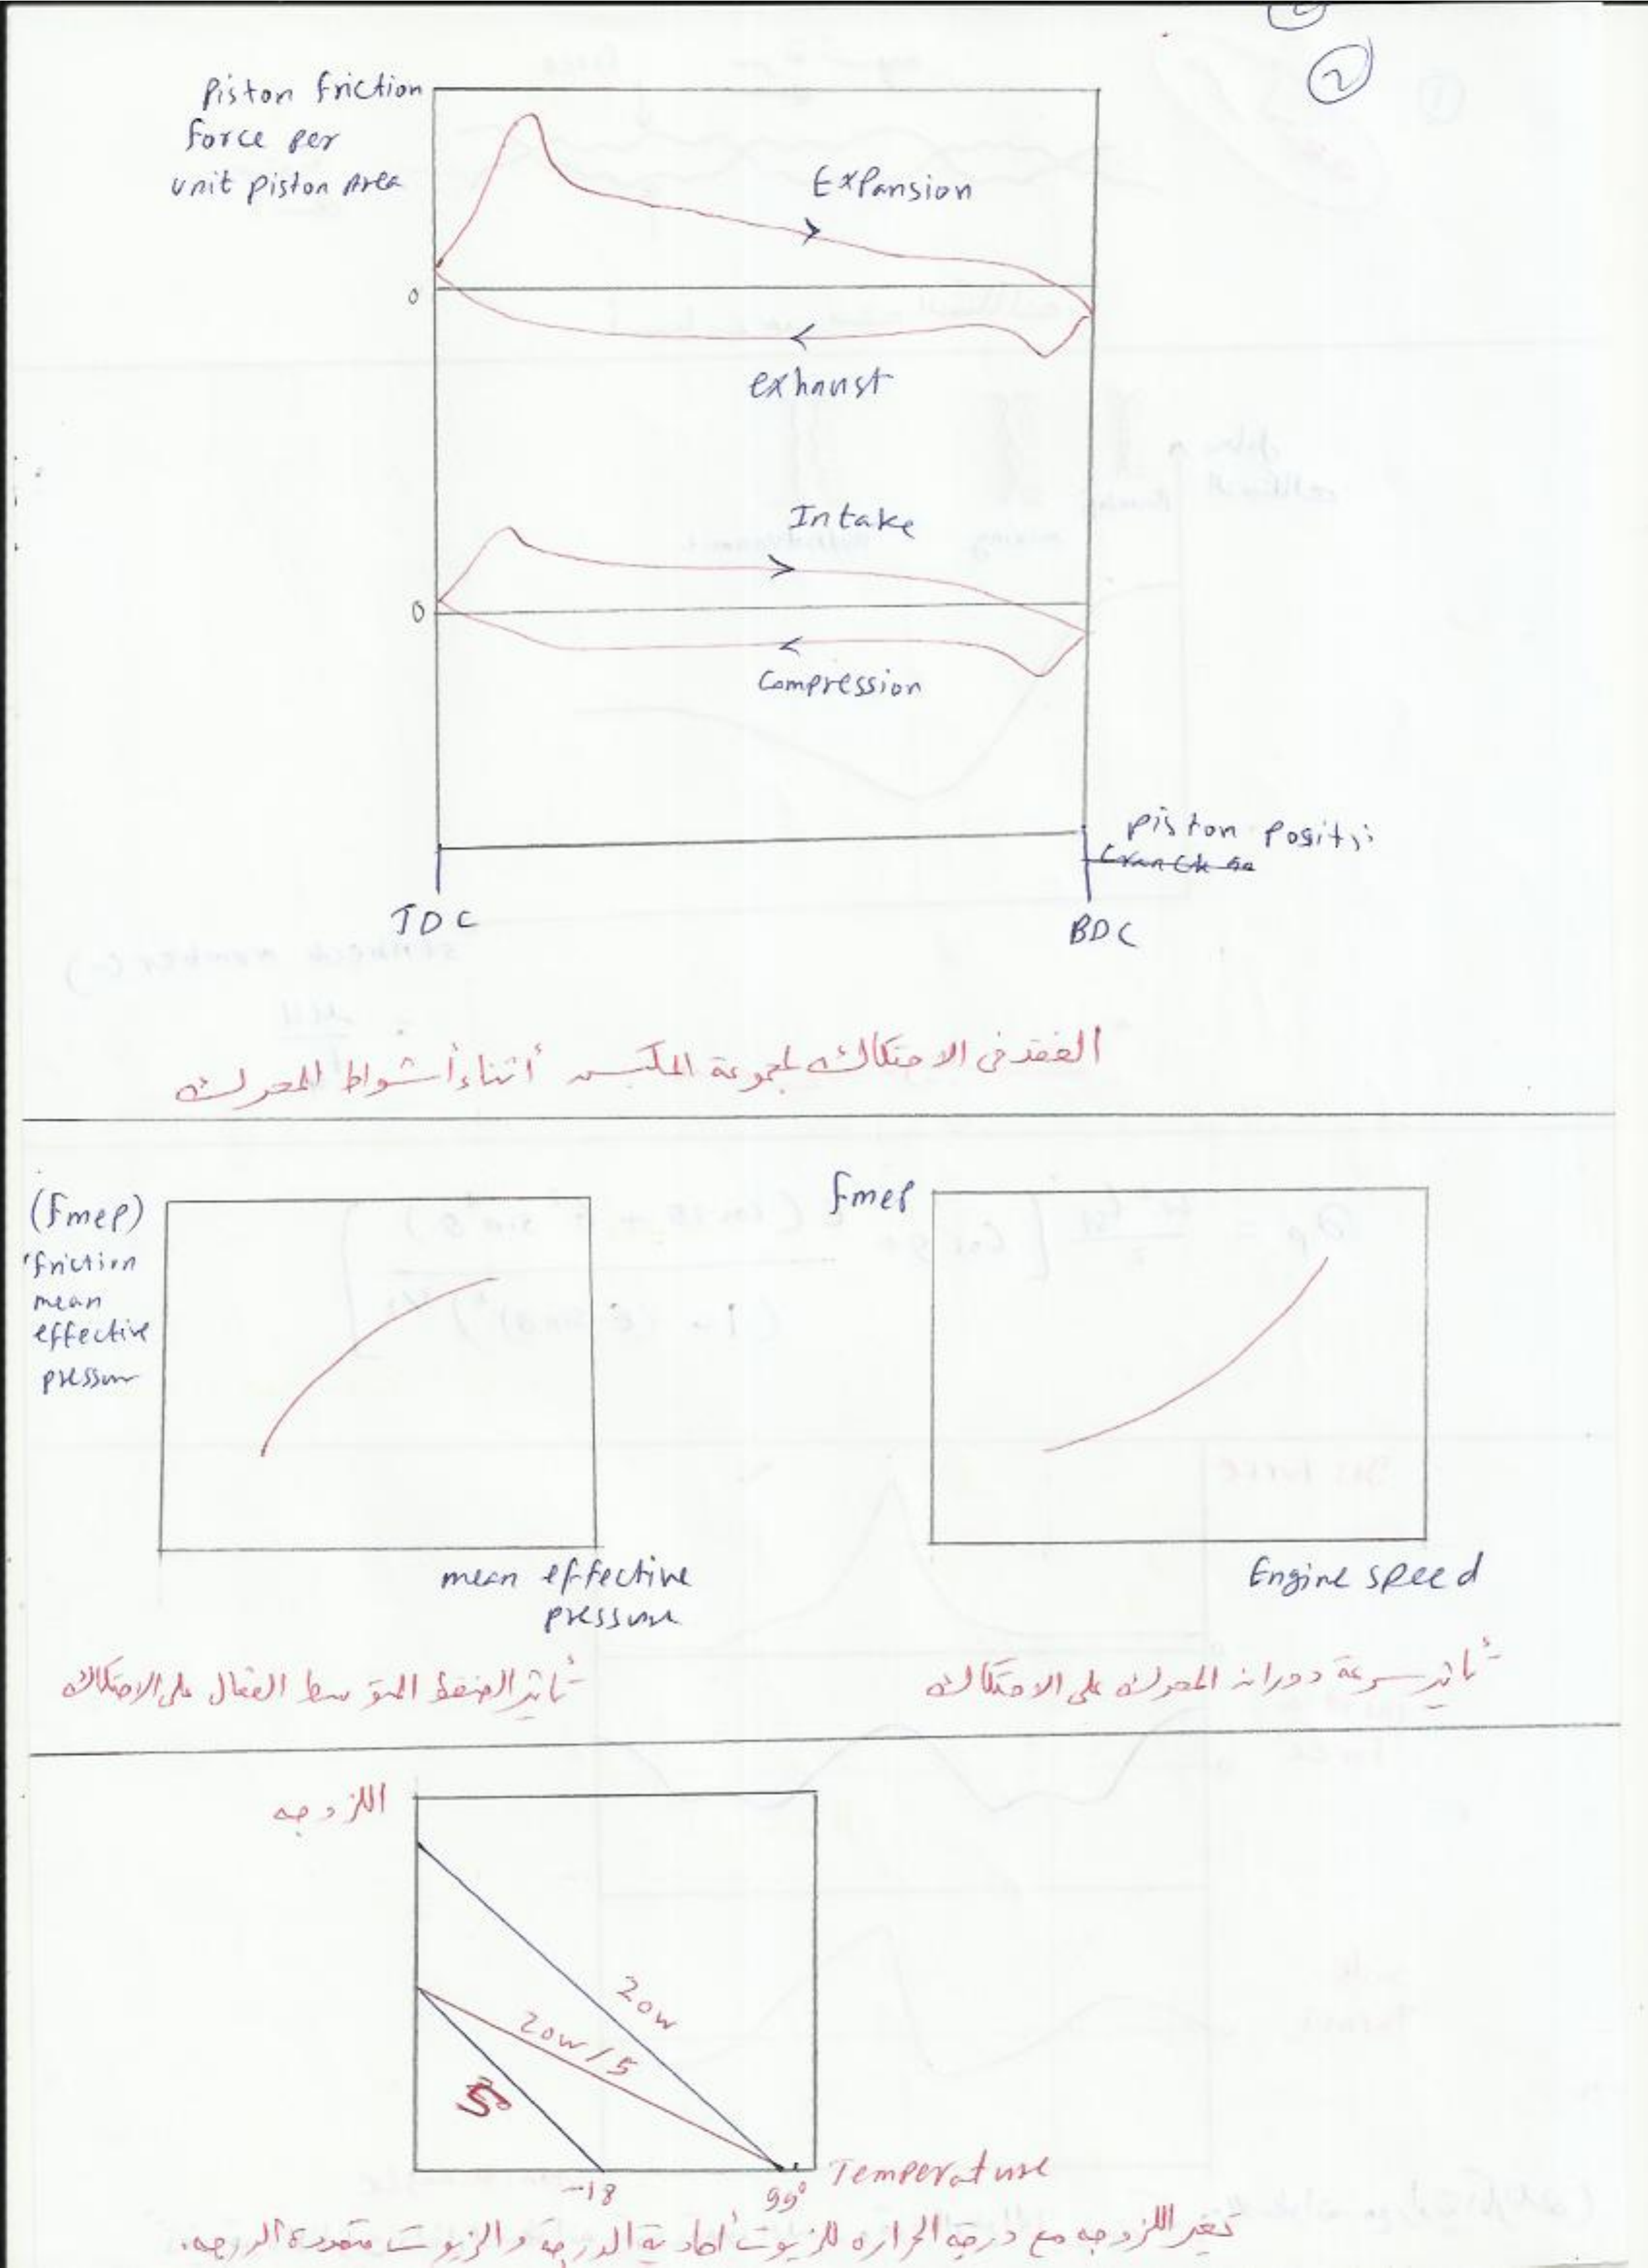 2
Piston friction
force per
unit piston Area
Expansion
0
exhaust
Intake
0
Compression
piston
TDC
BDC
الفقد فى الاحتكاك لمجموعة المكبس أثناء أشواط المحرك
(fmep)
friction
mean
effective
pressure
mean effective
pressure
تأثير الضغط المتوسط الفعال على الاحتكاك
fmep
Engine speed
تأثير سرعة دوران المحرك على الاحتكاك
اللزوجه
20w
20w/5
5
-18
99°
Temperature
تغير اللزوجه مع درجة الحراره للزيوت أحادية الدرجة والزيوت متعددة الدرجه.